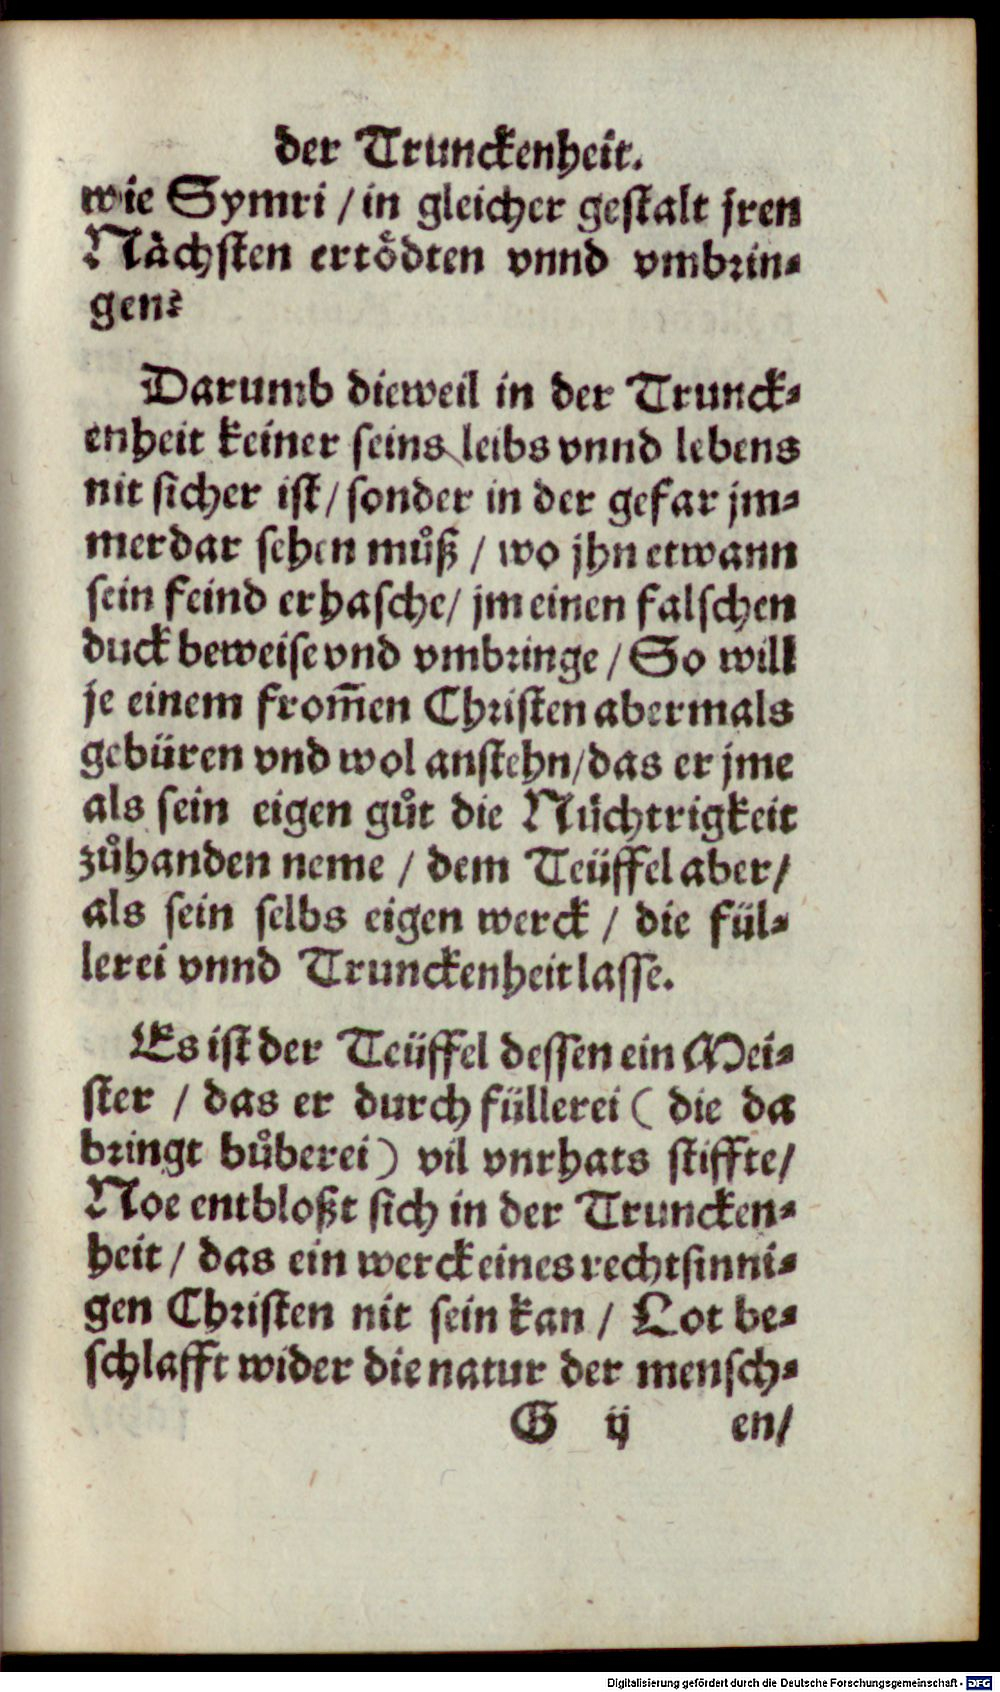 der Trunckenheit.
wie Symri / in gleicher gestalt jren
Nächsten ertödten vnnd vmbrin-
gen?
Darumb dieweil in der Trunck-
enheit keiner seins leibs vnnd lebens
nit sicher ist / sonder in der gefar jm-
merdar sehen můß / wo jhn etwann
sein feind erhasche / jm einen falschen
duck beweise vnd vmbringe / So will
je einem from̃en Christen abermals
gebüren vnd wol anstehn / das er jme
als sein eigen gůt die Nüchtrigkeit
zůhanden neme / dem Teüffel aber /
als sein selbs eigen werck / die fül-
lerei vnnd Trunckenheit lasse.
Es ist der Teüffel dessen ein Mei-
ster / das er durch füllerei ( die da
bringt bůberei ) vil vnrhats stiffte /
Noe entbloßt sich in der Truncken-
heit / das ein werck eines rechtsinni-
gen Christen nit sein kan / Lot be-
schlafft wider die natur der mensch-
G ij en /
Digitalisierung gefördert durch die Deutsche Forschungsgemeinschaft - DFG